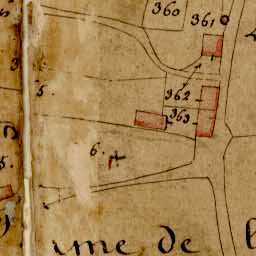 360
361
362
5.
363
6.
5.
ume de